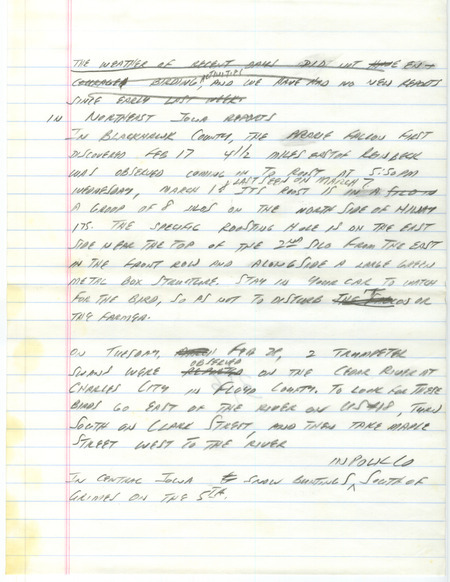 THE WEATHER OF RECENT DAYS DID NOT EN-
COURAGE BIRDING ACTIVITIES, AND WE HAVE HAD NO NEW REPORTS
SINCE EARLY LAST WEEK.
IN NORTHEST IOWA REPORTS
IN BLACKHAWK COUNTY, THE PRAIRIE FALCON FIRST
DISCOVERED FEB 17 4 1/2 MILES EAST OF REINBECK
WAS OBSERVED COMING IN TO ROOST AT 5:50 PM
WEDNESDAY, MARCH 1 & LAST SEEN ON MARCH 7 ITS ROOST IS IN A SILO IN
A GROUP OF 8 SILOS ON THE NORTH SIDE OF HIWAY
175. THE SPECIFIC ROOSTING HOLE IS ON THE EAST
SIDE NEAR THE TOP OF THE 2ND SILO FROM THE EAST
IN THE FRONT ROW AND ALONGSIDE A LARGE GREEN
METAL BOX STRUCTURE. STAY IN YOUR CAR TO WATCH
FOR THE BIRD, SO AS NOT TO DISTURB IT OR
THE FARMER.
ON TUESDAY, FEB 28, 2 TRUMPETER
SWANS WERE OBSERVED ON THE CEDAR RIVER AT
CHARLES CITY IN FLOYD COUNTY. TO LOOK FOR THESE
BIRDS GO EAST OF THE RIVER ON US 18, TURN
SOUTH ON CLARK STREET, AND THEN TAKE MAPLE
STREET WEST TO THE RIVER
IN POLK CO
IN CENTRAL IOWA SNOW BUNTINGS SOUTH OF
GRIMES ON THE 5TH.